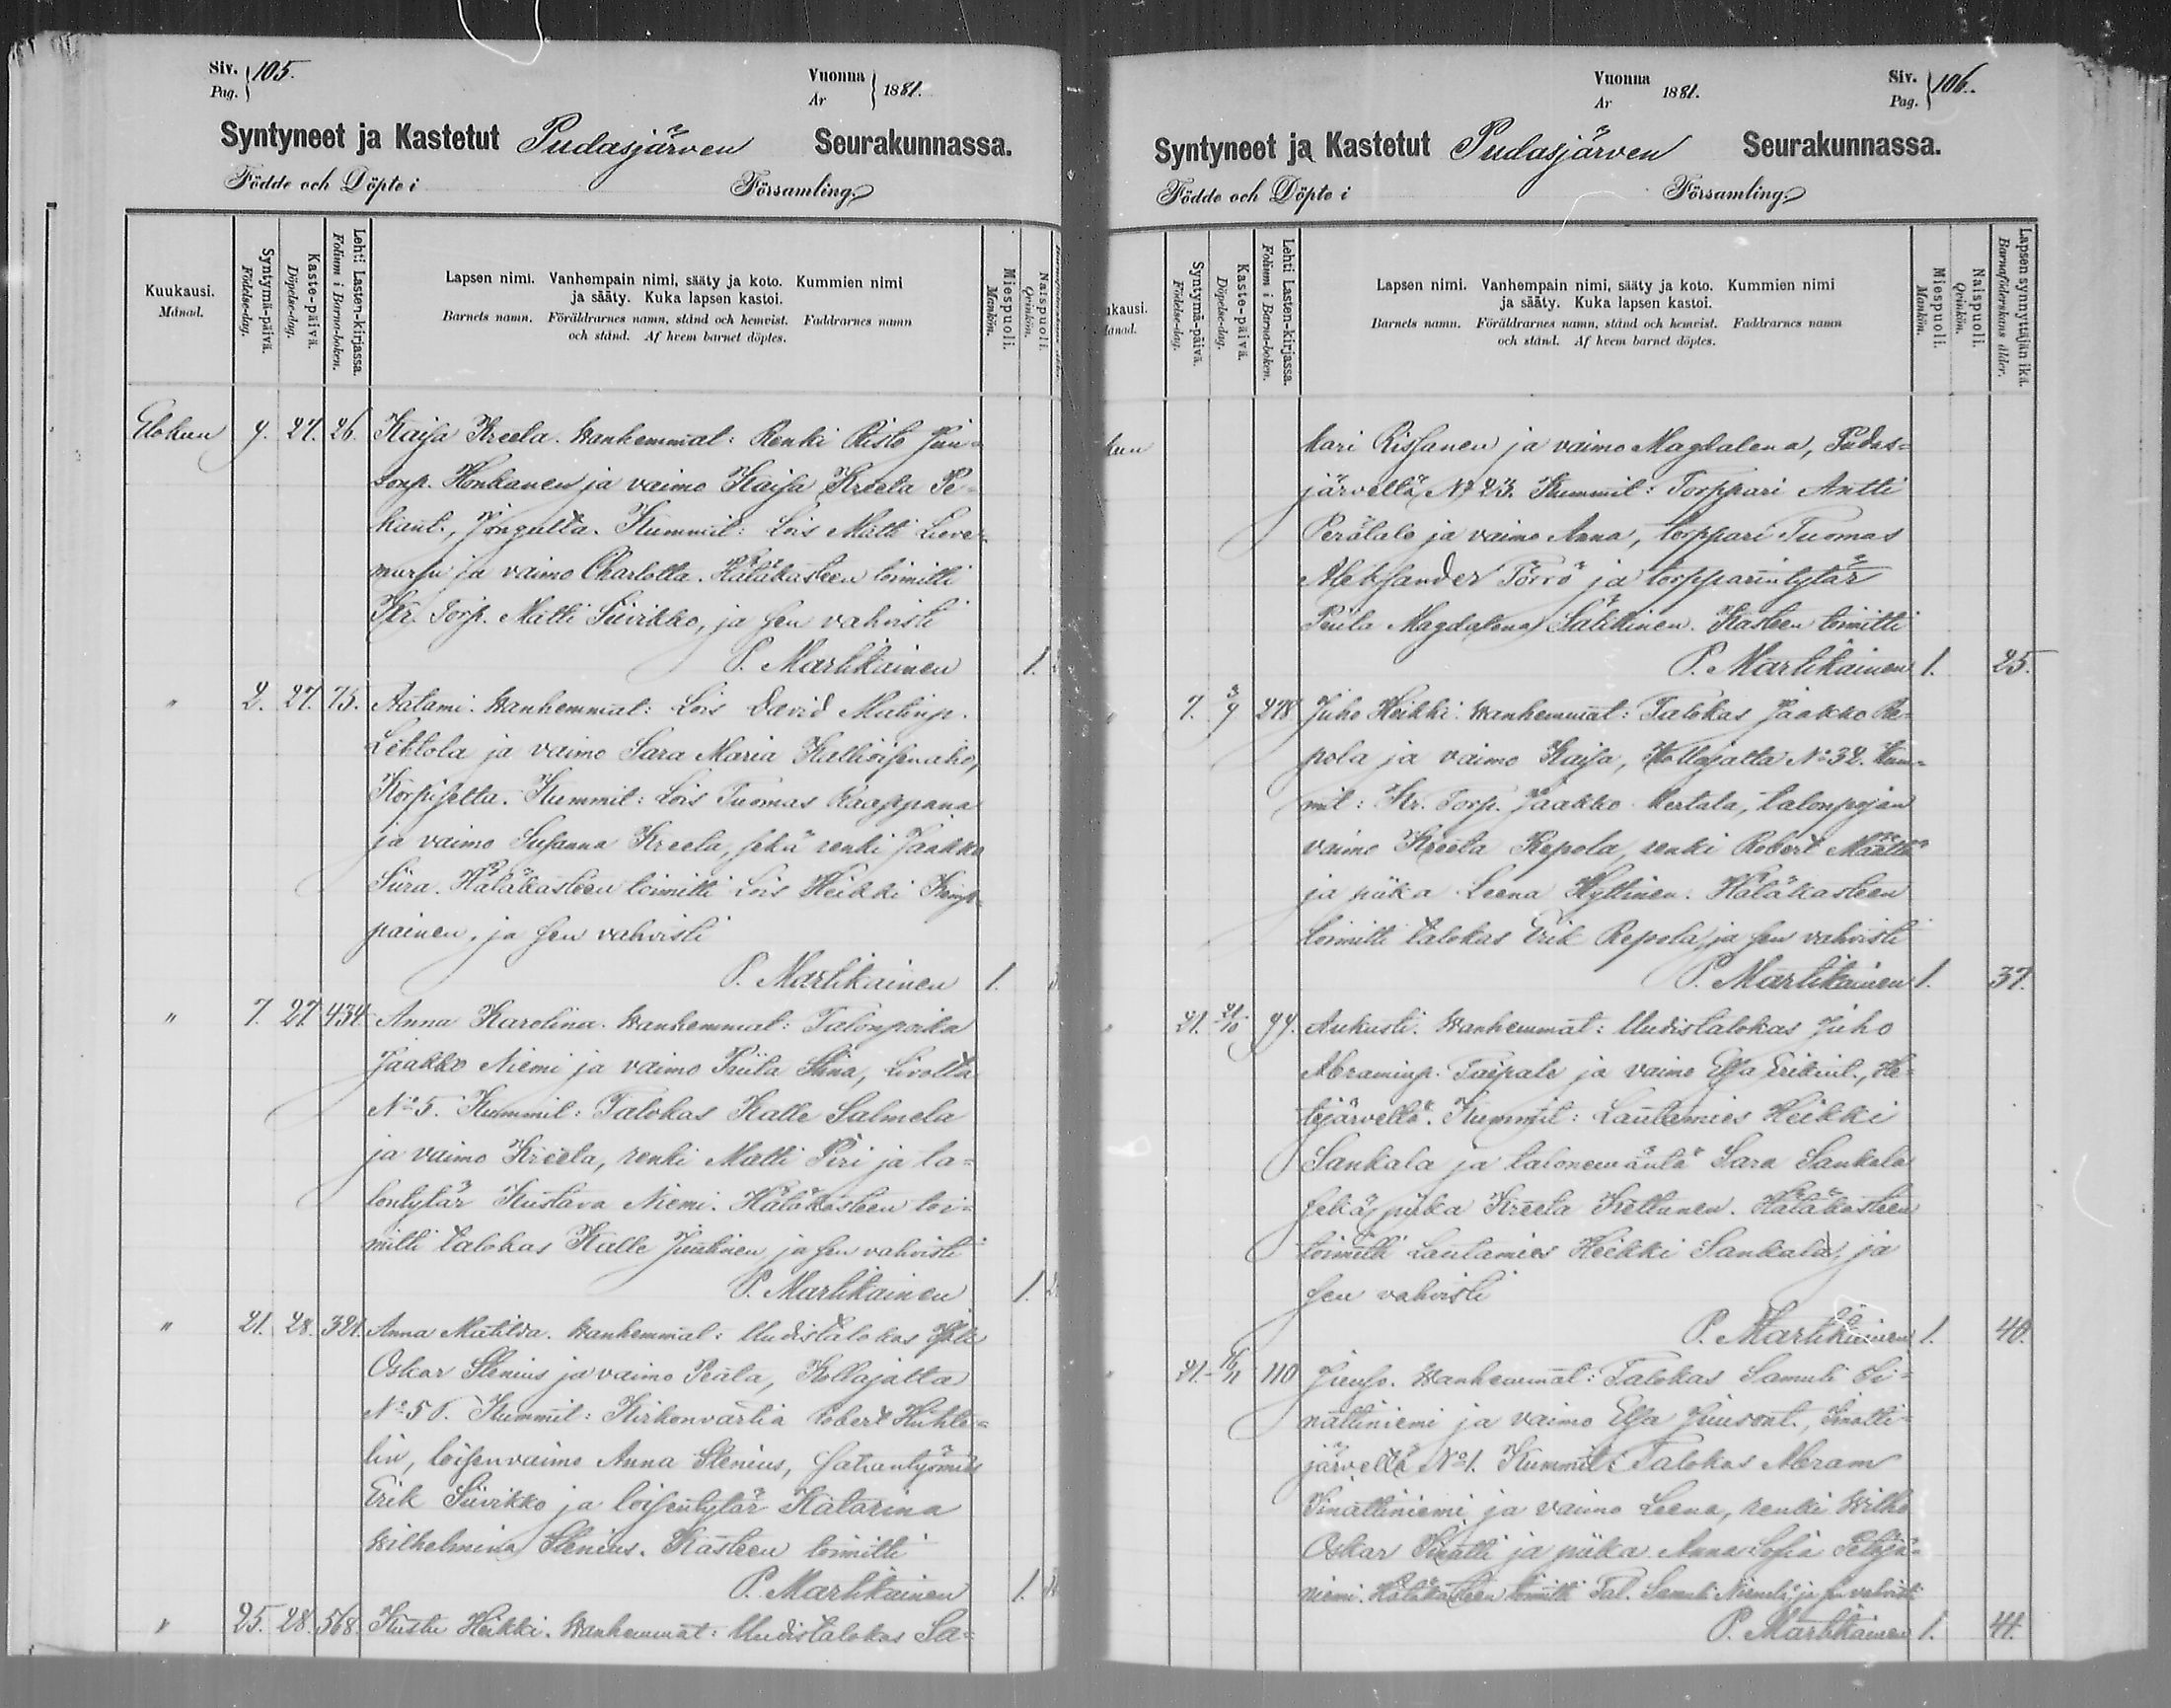 Siv. Pag. } 105.
Vuonna År } 1881.
Syntyneet ja Kastetut Pudasjärven Seurakunnassa.
Födde och Döpte i Församling.
Kuukausi. Månad.
Syntymä-päivä. Födelse-dag.
Kaste-päivä. Döpelse-dag.
Lehti Lasten-kirjassa. Folium i Barna-boken.
Lapsen nimi. Vanhempain nimi, sääty ja koto. Kummien nimi
ja sääty. Kuka lapsen kastoi.
Barnets namn. Föräldrarnes namn, stånd och hemvist. Faddrarnes namn
och stånd. Af hvem barnet döptes.
Miespuoli. Mankön.
Naispuoli. Qvinkön.
Elokuu 9. 27. 26. Kaisa Kreeta. Wanhemmat: Renki Risto Jun-
tonp. Honkanen ja vaimo Kaisa Kreeta Pe-
kant., Jongulta. Kummit: Lois Matti Lieve-
mursu ja vaimo Charlotta. Hätäkasteen toimitti
Kr. Torp. Matti Siivikko, ja sen vahvisti
P. Martikainen 1.
" 2. 27. 75. Aatami. Wanhemmat: Lois David Matinp.
Lehtola ja vaimo Sara Maria Kallioisenaho,
Korpiselta. Kummit: Lois Tuomas Kaappana
ja vaimo Susanna Kreeta, sekä renki Jaakko
Siira. Hätäkasteen toimitti Lois Heikki Kemp-
painen, ja sen vahvisti
P. Martikainen 1.
" 7. 27. 434. Anna Karoliina. Wanhemmat: Talonpoika
Jaakko Niemi ja vaimo Priita Stina, Livolta
No 5. Kummit: Talokas Kalle Salmela
ja vaimo Kreeta, renki Matti Piri ja ta-
lontytär Kustava Niemi. Hätäkasteen toi-
mitti talokas Kalle Juutinen ja sen vahvisti
P. Martikainen 1.
" 21. 28. 321. Anna Matilda. Wanhemmat: Uudistalokas
Oskar Stenius ja vaimo Peata, Kollajalta
No 5. Kummit: Kirkonvartia Robert Huhta-
lin, loisenvaimo Anna Stenius, sahantyömies
Erik Siivikko ja loisentytär Katarina
Wilhelmina Stenius. Kasteen toimitti
P. Martikainen 1.
" 25. 28. 568. Kustu Heikki. Wanhemmat: Uudistalokas Sa-
Vuonna År 1881.
Siv. Pag. } 106.
Syntyneet ja Kastetut Pudasjärven Seurakunnassa.
Födde och Döpte i Församling.
ukausi. Månad.
Syntymä-päivä. Födelse-dag.
Kaste-päivä. Döpelse-dag.
Lehti Lasten-kirjassa. Folium i Barna-boken.
Lapsen nimi. Vanhempain nimi, sääty ja koto. Kummien nimi
ja sääty. Kuka lapsen kastoi.
Barnets namn. Föräldrarnes namn, stånd och hemvist. Faddrarnes namn
och stånd. Af hvem barnet döptes.
Miespuoli. Mankön.
Naispuoli. Qvinkön.
Lapsen synnyttäjän ikä. Barnaföderskans ålder.
kuu kari Rissanen ja vaimo Magdalena, Pudas-
järveltä No 23. Kummit: Torppari Antti
Perätalo ja vaimo Anna, torppari Tuomas
Aleksander Törrö ja torpparintytär
Priita Magdalena Sätkinen. Kasteen toimitti
P. Martikainen 1. 25.
7. 3/9 278 Juho Heikki. Wanhemmat: Talokas Jaakko Re-
pola ja vaimo Kaisa, Kollajalta No 32. Kum-
mit: Kr. Torp. Jaakko Mertala, talonpojan
vaimo Kreeta Repola, renki Robert Määttä
ja piika Leena Hyttinen. Hätäkasteen
toimitti talokas Erik Repola, ja sen vahvisti
P. Martikainen 1. 37.
21. 21/10 99. Aukusti. Wanhemmat: Uudistalokas Juho
Abraminp. Taipale ja vaimo Elsa Erikint., He-
tejärveltä. Kummit: Lautamies Heikki
Sankala ja talonemäntä Sara Sankala
sekä piika Kreeta Keltunen. Hätäkasteen
toimitti Lautamies Heikki Sankala, ja
sen vahvisti
P. Martikainen 1. 40.
21. 16/11 110 Juuso. Wanhemmat: Talokas Samuli Si-
nättiniemi ja vaimo Elsa Juusont., Sinätti-
järveltä No 1. Kummit: Talokas Abram
Sinättiniemi ja vaimo Leena, renki Wilho
Oskar Sinätti ja piika Anna Sofia Petäjä-
niemi. Hätäkasteen toimitti Tal. Samuli Niemelä, ja sen vahvisti
P. Martikainen 1. 44.